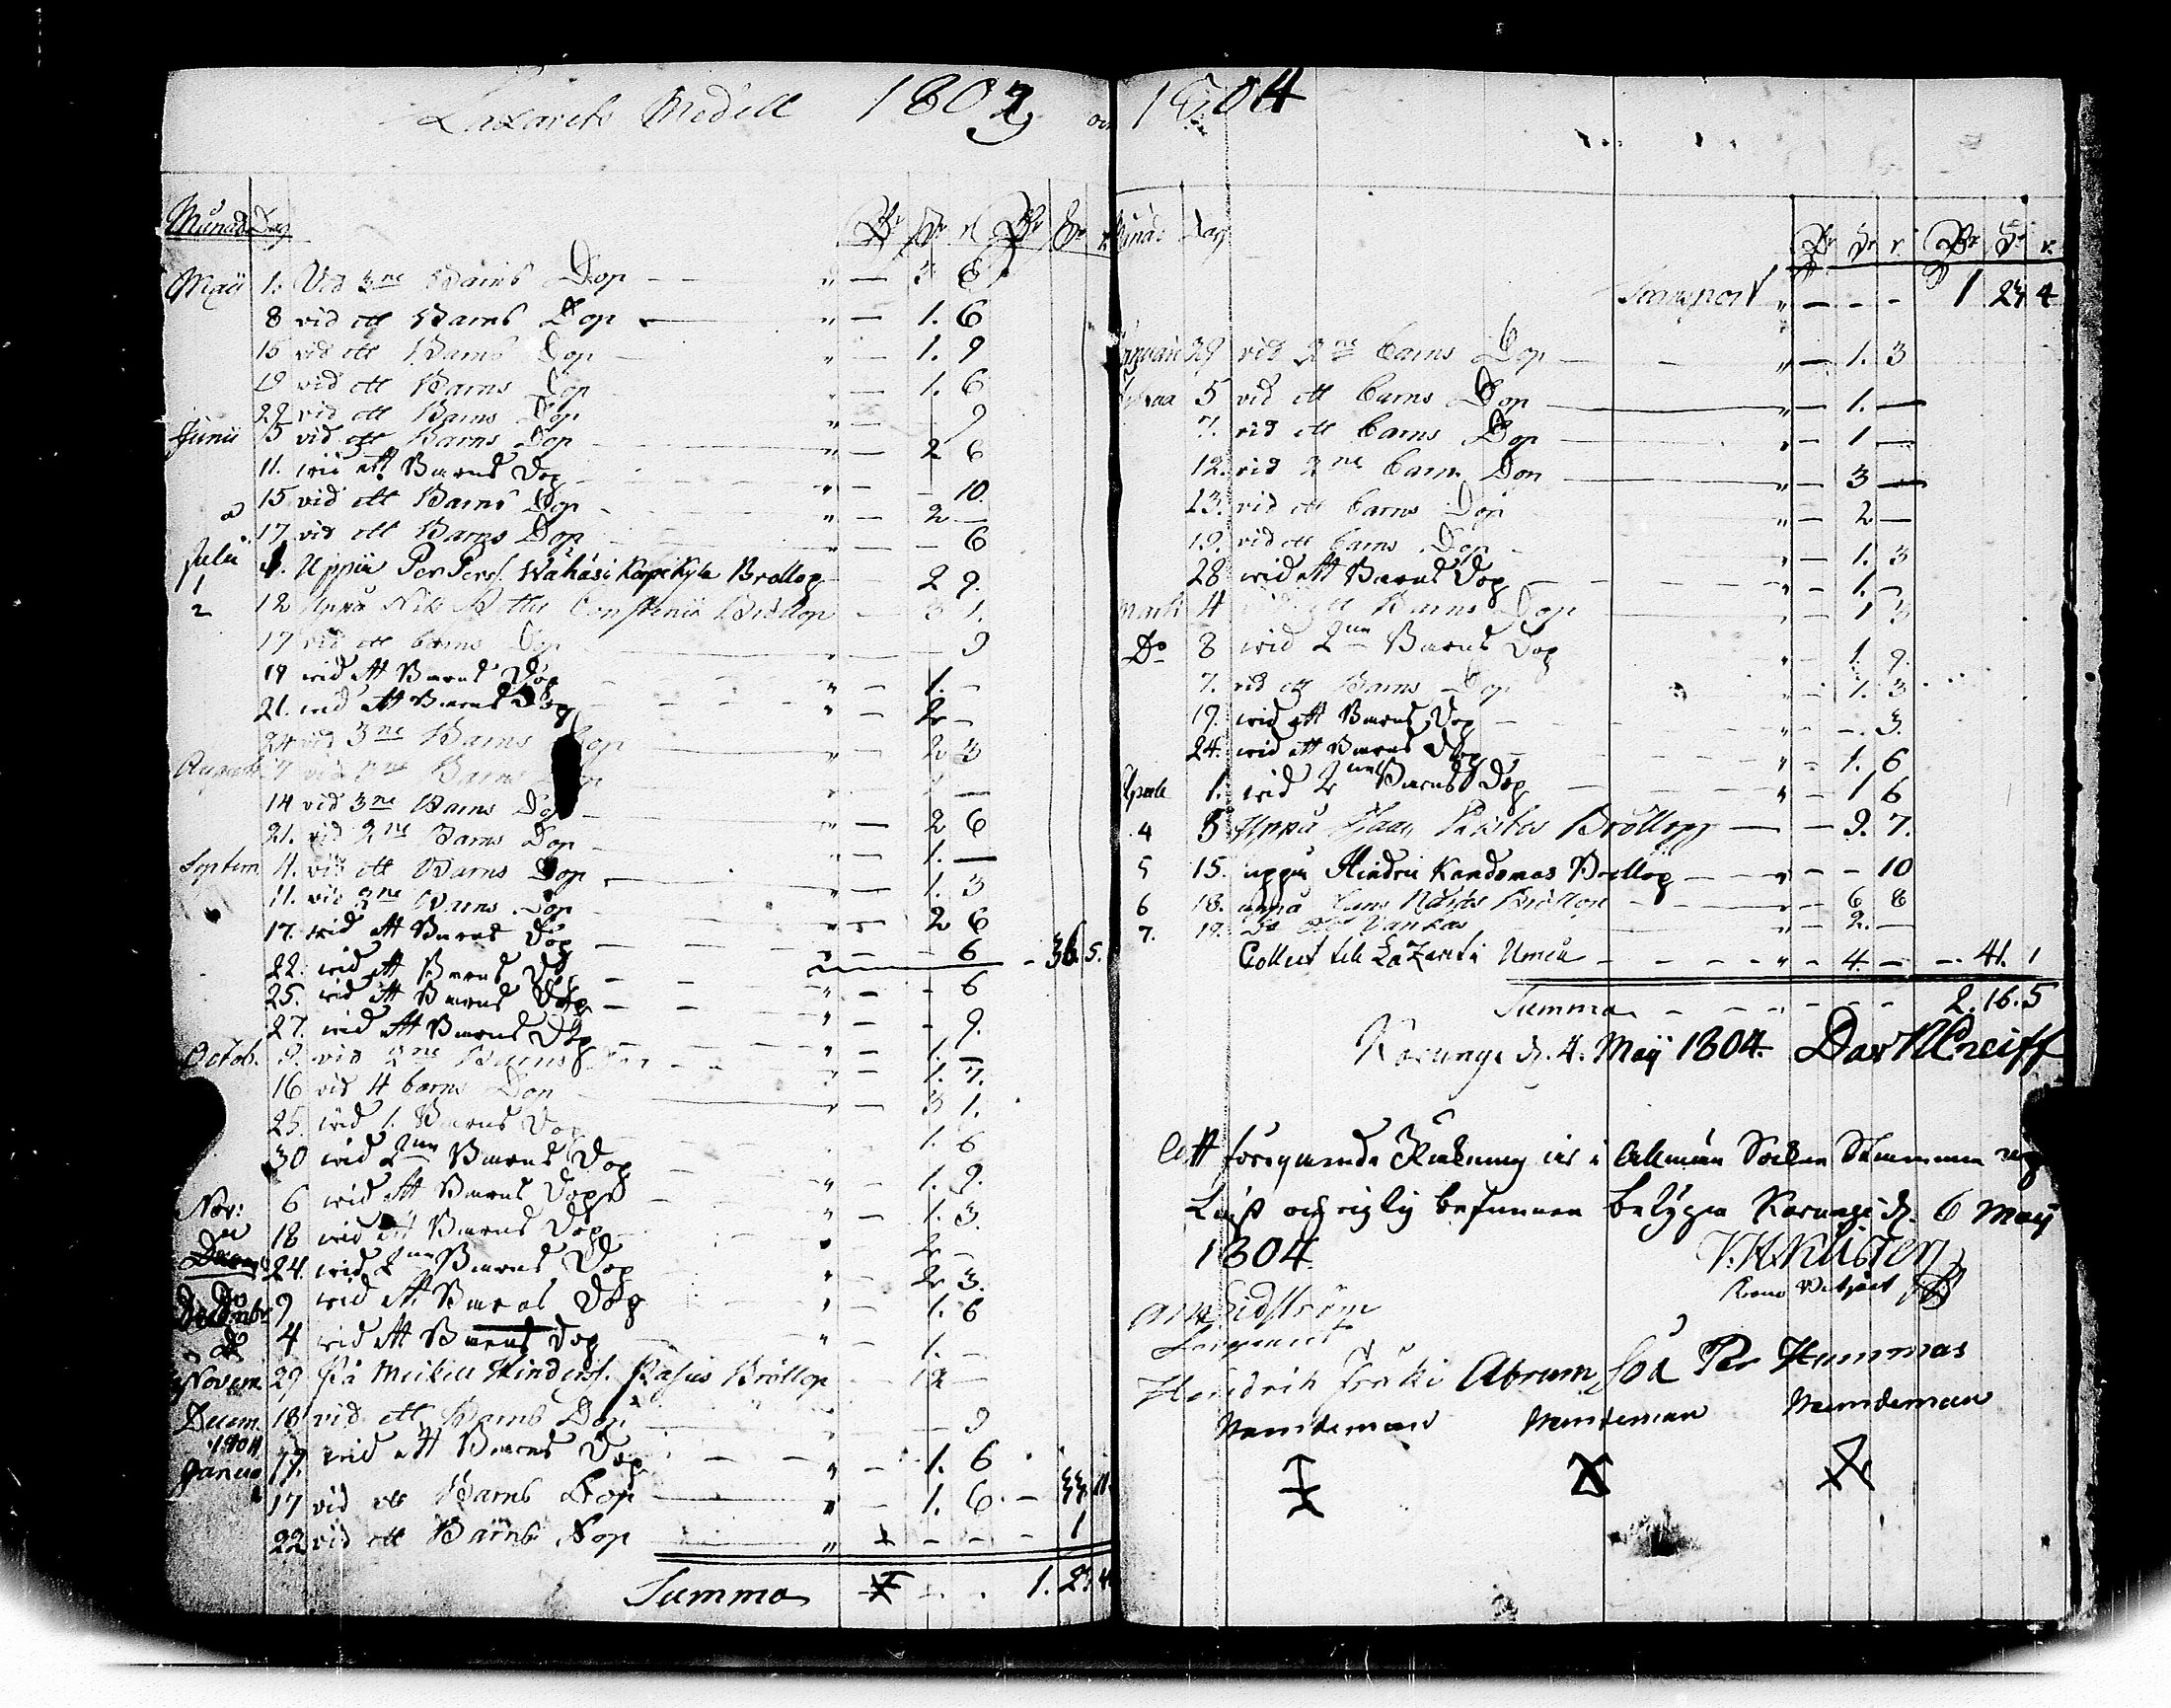 Lazarets Medell 1803 och 1804
Månad Dag Rr ß r Rr ß r
Maij 1. Vid 3ne Barns Dop " — 3 6
8 vid ett Barns Dop " — 1. 6
15 vid ett Barns Dop " — 1. 9
19 vid ett Barns Dop 1. 6
22 vid ett Barns Dop " — 9
Junii 5 vid ett Barns Dop " — 2 6
11. wid ett Barns Dop " — — 10.
15 vid ett Barns Dop " — 2 —
17 vid ett Barns Dop — — 6
Julii
1 Uppå Per Perss. Wahäsi Karpikylä Bröllop — 2 9.
2 12 Uppå Nils Bröllop — 3 1.
17 vid ett barns Dop — — 9
19 wid ett Barns Dop " — 1. —
21. wid ett Barns Dop " — 2 —
24 vid 3ne Barns Dop " — 2 3
August 7 vid Barns Dop —
14 vid 3ne Barns Dop " — 2 6
21. vid 2ne Barns Dop " — 1. —
Septem. 4. vid ett Barns Dop " — 1. 3
11. vid 3ne Barns Dop 2 6
17. wid ett Barns Dop " — — 6 — 36. 5.
22. wid ett Barns Dop " — — 6
25. wid ett Barns Dop " — — 9.
27. wid ett Barns Dop " — 1. —
Octob. 9. vid 2ne Barns Dop " — 1. 7.
16 vid 4 barns Dop — 3 1.
25. wid 1. Barns Dop 1. 6
30 wid 2ne Barns Dop " — 1. 9.
Nov: 6 wid ett Barns Dop " — 1. 3.
18 wid ett Barns Dop 2 —
24. wid 2ne Barns Dop " — 2 3.
Decembr 9 wid ett Barns Dop " — 1. 6
do 4 wid ett Barns Dop " — 1. —
Novem. 29 På Mickill Hinderss. Bröllop — 12 —
Decem. 18 vid ett Barns Dop — — 9
1804
Januari wid ett Barns Dop " — 1. 6
17 vid ett Barns Dop " — 1. 6. — 33. 11.
22 vid ett Barns Dop " — — — 1
Summa 1. 23 4
Månad Dag Rr ß r Rr ß r
Transport " — — — 1 23 4
Januari 29 vid 2ne barns Dop " — 1. 3
Februa 5 vid ett barns Dop " — 1. —
7. vid ett barns Dop " — 1 —
12. vid 2ne barns Dop " — 3 —
13. vid ett barns Dop " — 2 —
19. vid ett barns Dop " — 1. 3
28 wid ett Barns Dop " — 1. —
Martii 4 vid ett Barns Dop — 1 3
Do 8 wid 2ne Barns Dop " — 1. 9.
7. vid ett Barns Dop " — 1. 3
19. wid ett Barns Dop " — — 3.
24. wid ett Barns Dop " — 1. 6
Aprill 1. wid 2ne Barns Dop " — 1 6
4 8 Uppå Bröllop — — 9. 7.
5 15. uppå Hindric Kandomas Bröllop " — — 10
6 18. uppå Hans Bröllop " — 6 8
7. 19. Do — 2. —
Collect till Lazaret i Umeå " — 4. — — 41. 1
Summa — — 2. 16. 5
Karungi d. 4. Maij 1804. Dav
Att föregående Räkning är i Allmän Sockne Stämma up
Läst och rigtig befunnen betygar Karungi d. 6 Maij
1804
Nämdeman Abram Per Hummas
Nämdeman Nämdeman